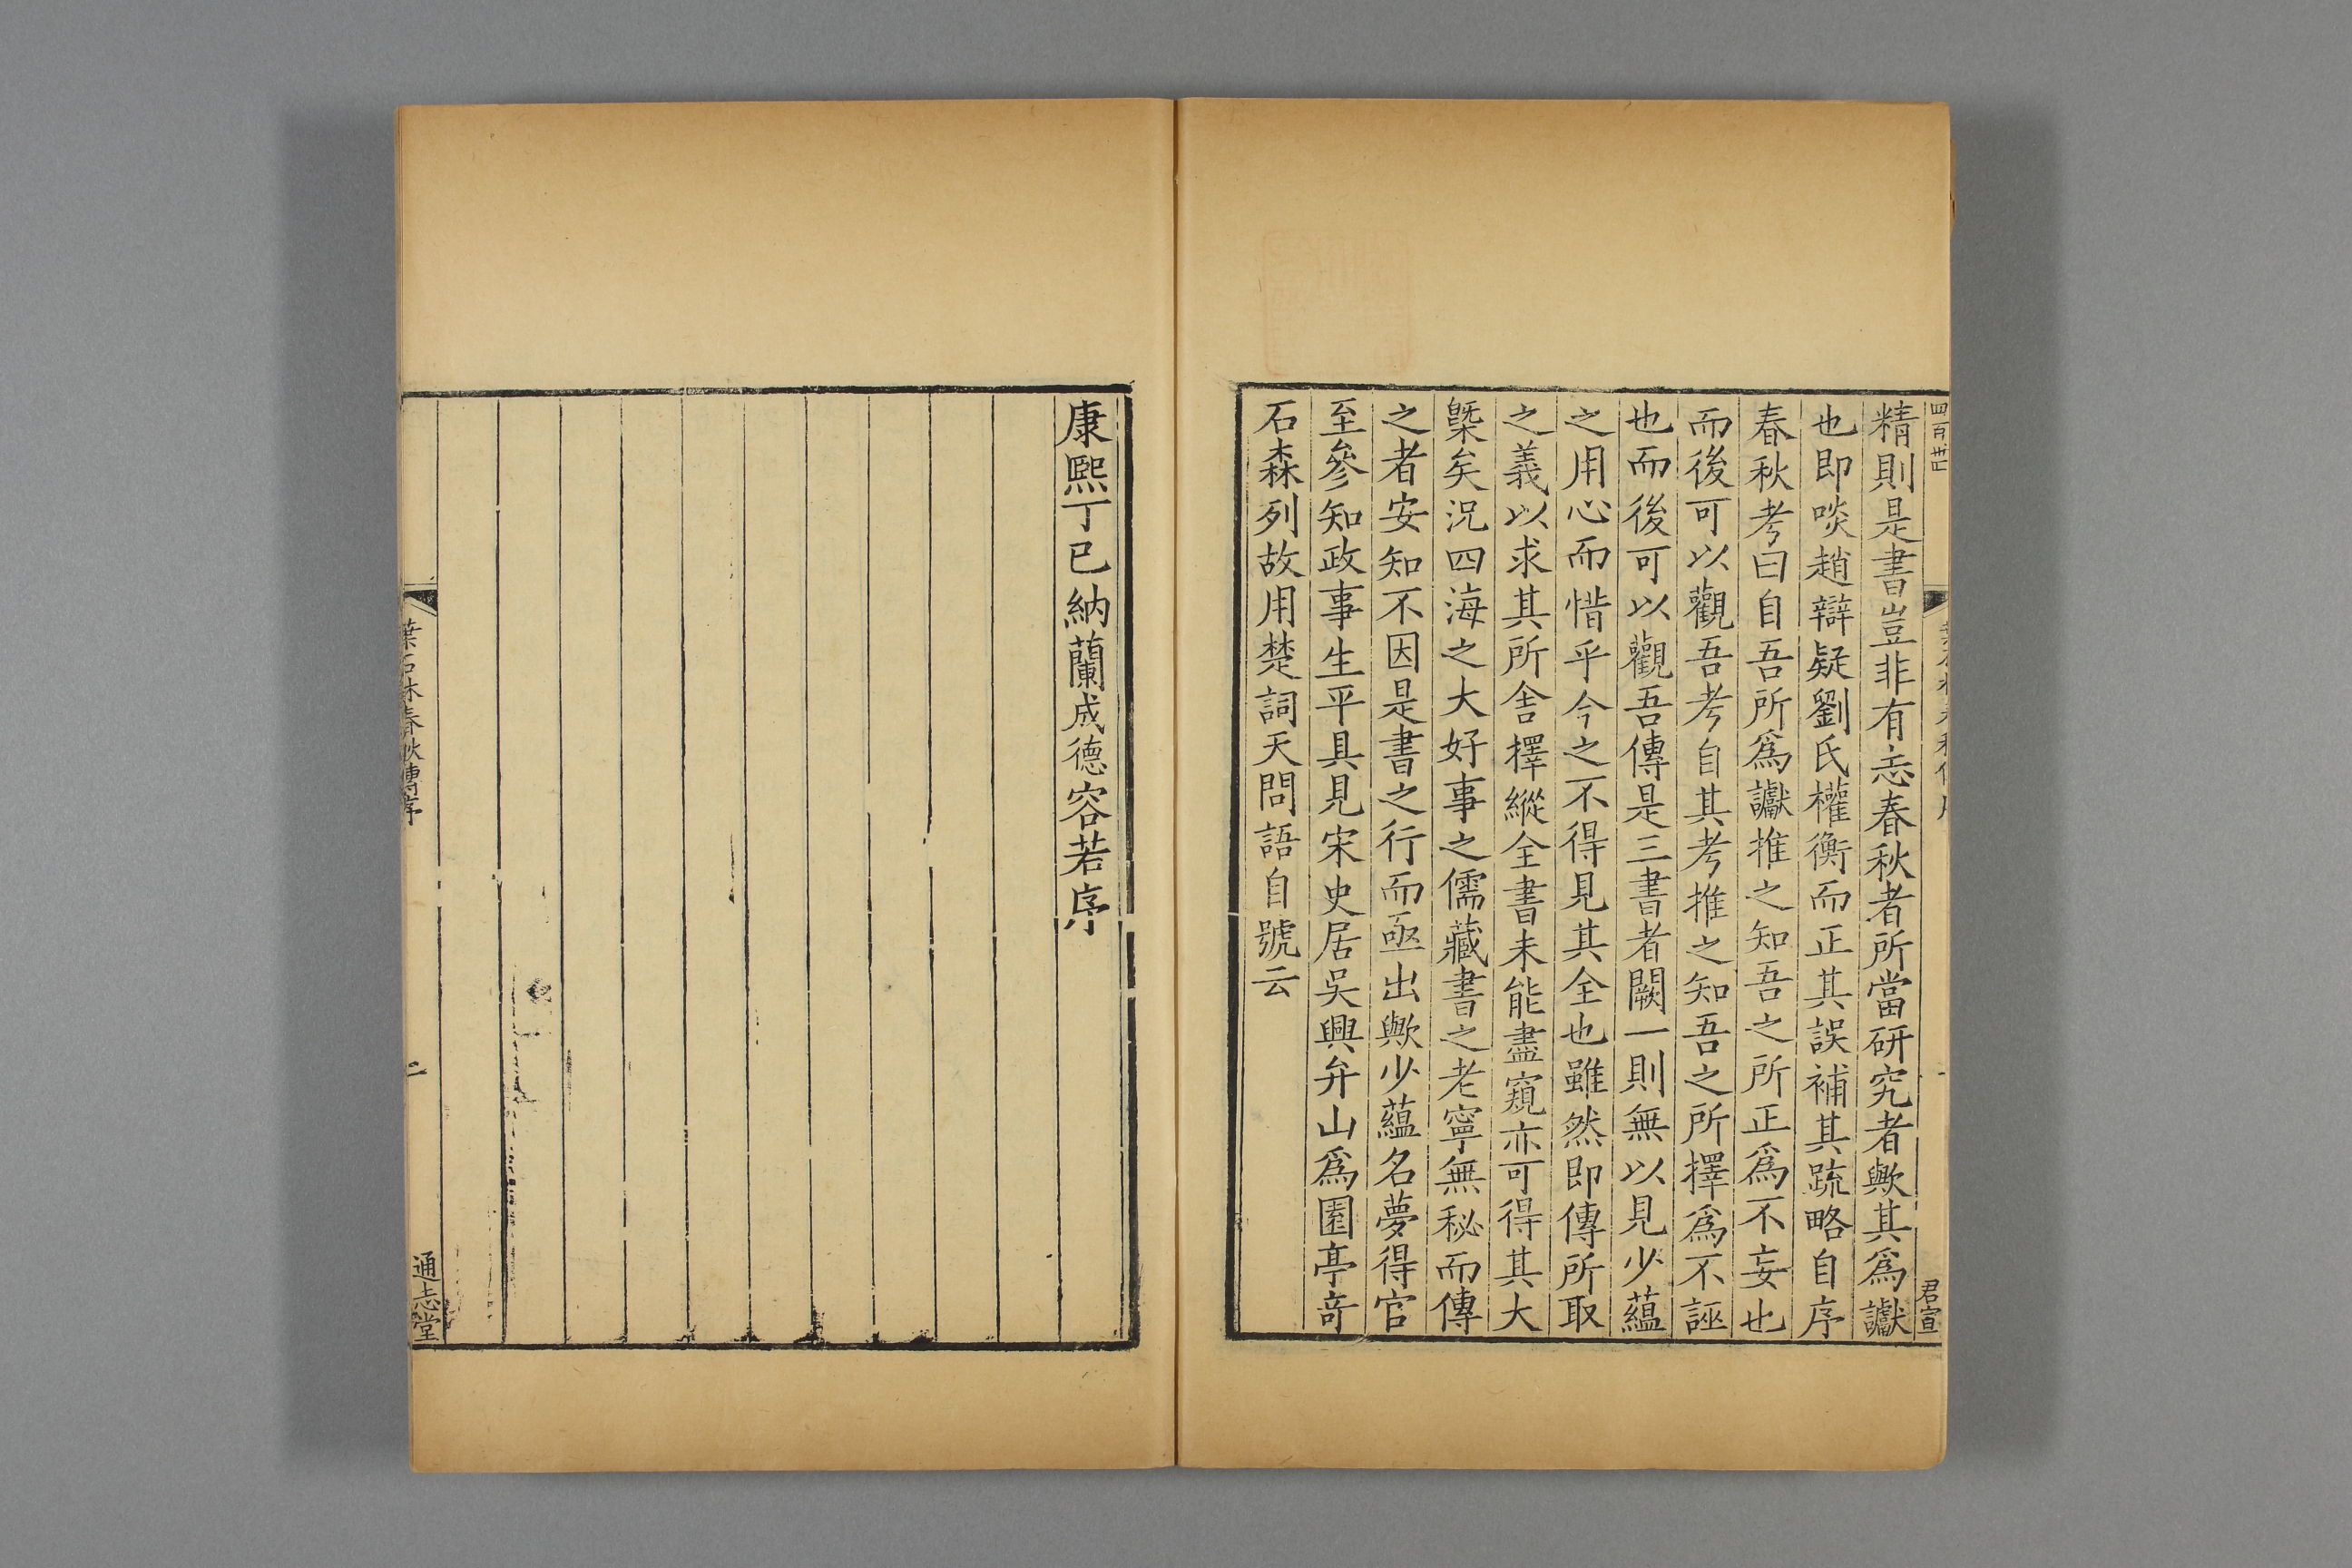 四百卅四
君宣
精則是書豈非有志春秋者所當研究者歟其爲讞
也即啖趙辯疑劉氏權衡而正其誤補其疏略自序
春秋考曰自吾所爲讞推之知吾之所正爲不妄也
而後可以觀吾考自其考推之知吾之所擇爲不誣
也而後可以觀吾傳是三書者闕一則無以見少蘊
之用心而惜乎今之不得見其全也雖然即傳所取
之義以求其所舍擇縱全書未能盡窺亦可得其大
槩矣況四海之大好事之儒藏書之老寧無秘而傳
之者安知不因是書之行而亟出歟少蘊名夢得官
至參知政事生平具見宋史居吳興弁山爲園亭奇
石森列故用楚詞天問語自號云
康熙丁巳納蘭成德容若序
葉石林春秋傳序
二
通志堂